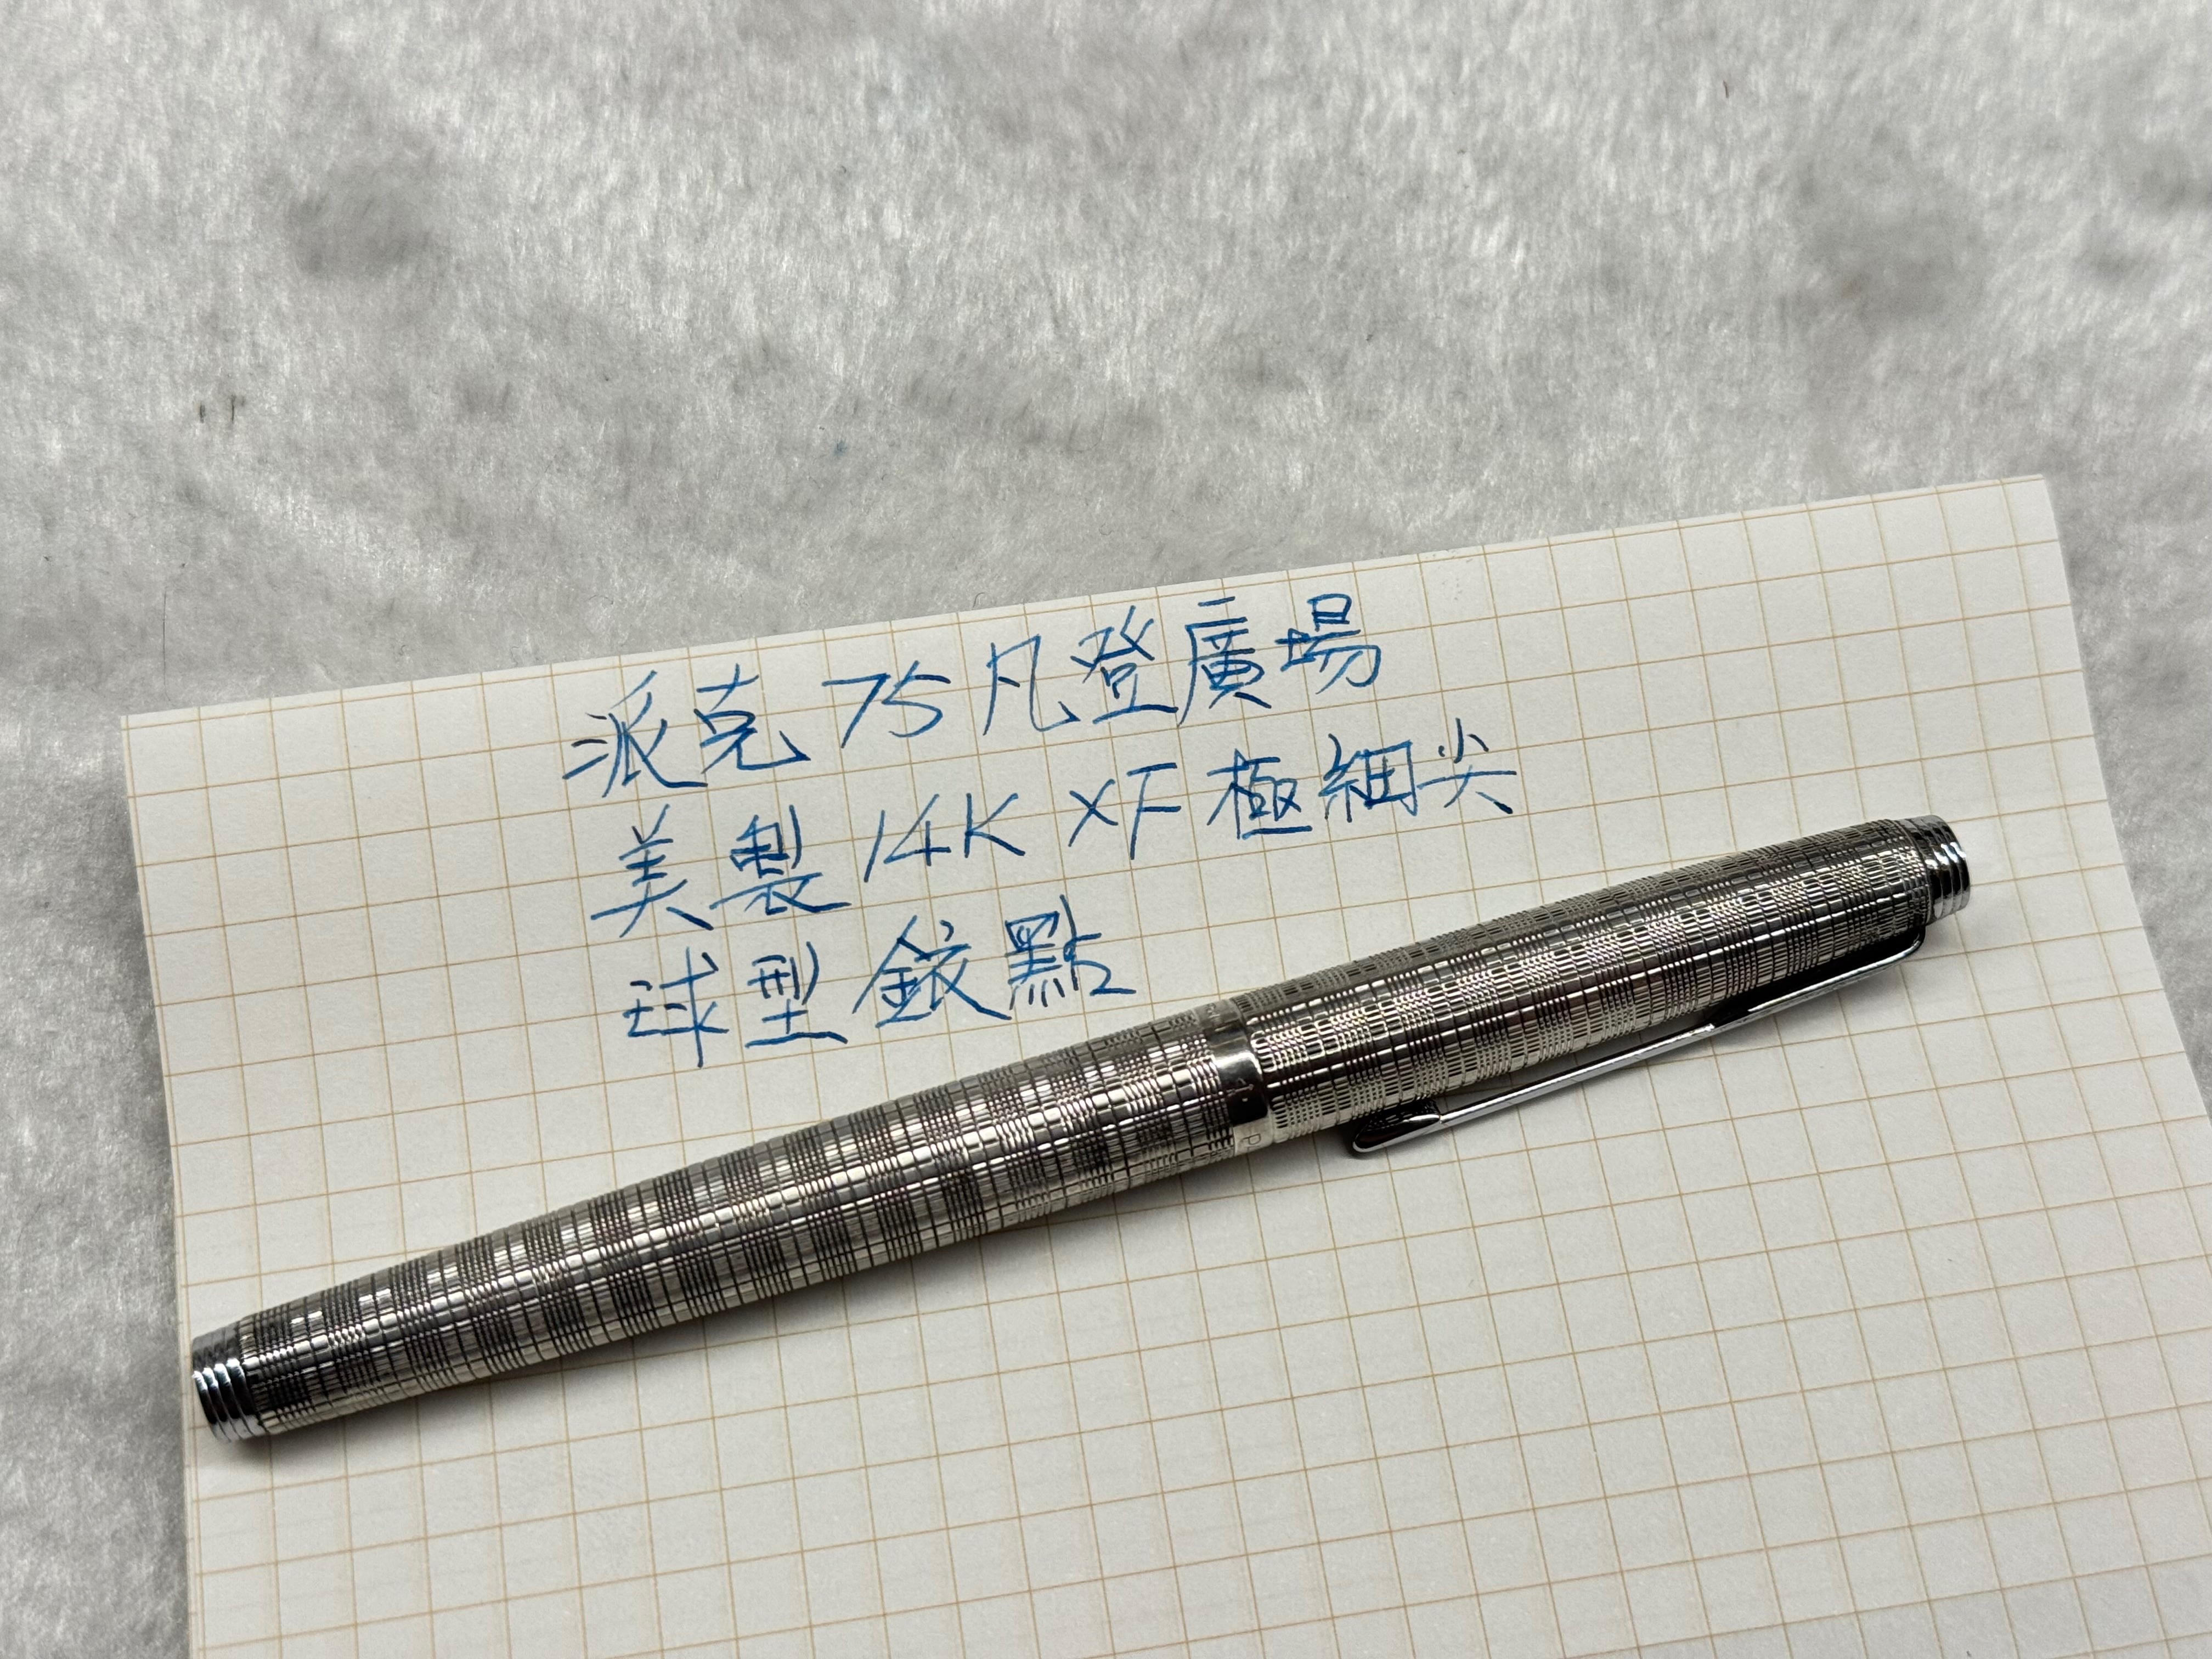 派克 75 凡登廣場
美製 14K XF 極細尖
球型銥點